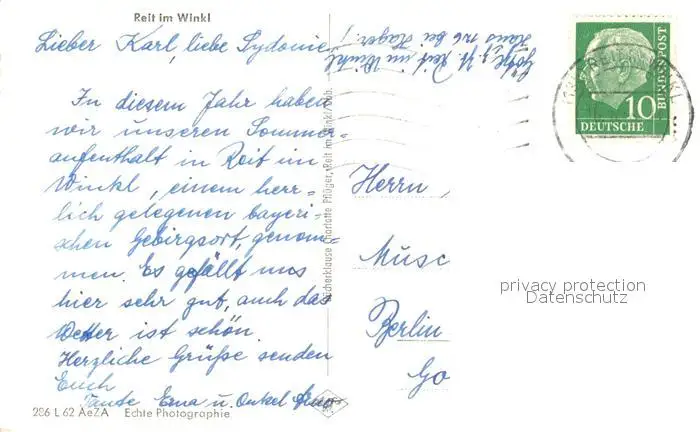 Reit im Winkl
Lieber Karl, liebe Sydonie
In diesem Jahr haben
wir unseren Sommer-
aufenthalt in Reit im
Winkl, einem herr-
lich gelegenen bayeri-
schen Gebirgsort, genom-
men. Es gefällt uns
hier sehr gut, auch das
Wetter ist schön.
Herzliche Grüße senden
Euch
Tante Erna u. Onkel
286 L 62 AeZA Echte Photographie
Bücherklause Charlotte Pflüger, Reit im Winkl, Obb.
z. Zt. Reit im Winkl
Haus 126 bei Hager
10
DEUTSCHE
BUNDESPOST
Herrn
Musc
Berlin
Go
privacy protection
Datenschutz